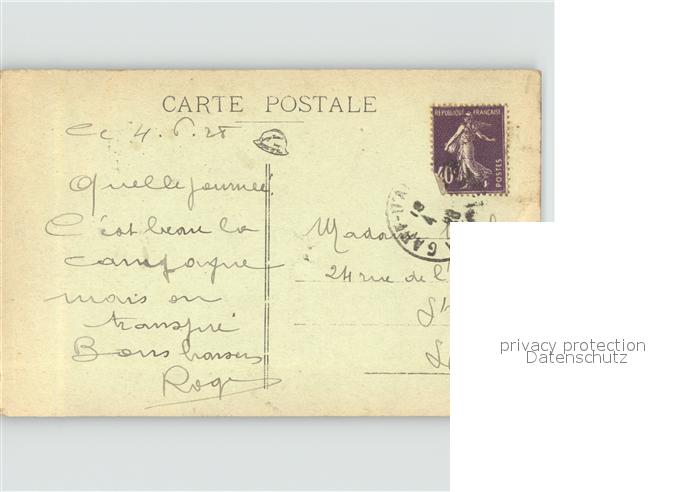 CARTE POSTALE
Ce 4.6.28
Quelle journée
C'est beau la
campagne
mais on
transpire
Bons baisers
Roger
REPUBLIQUE FRANÇAISE
POSTES
40
GARE-D'A
18
4
Madame
24 rue de l'
St
privacy protection
Datenschutz